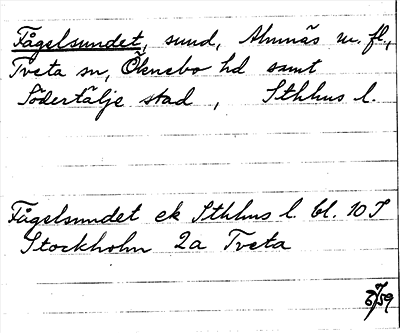 Fågelsundet, sund, Almnäs m. fl.,
Tveta sn, Öknebo hd samt
Södertälje stad, Sthlms l.
Fågelsundet ek Sthlms l. bl. 10 S
Stockholm 2a Tveta